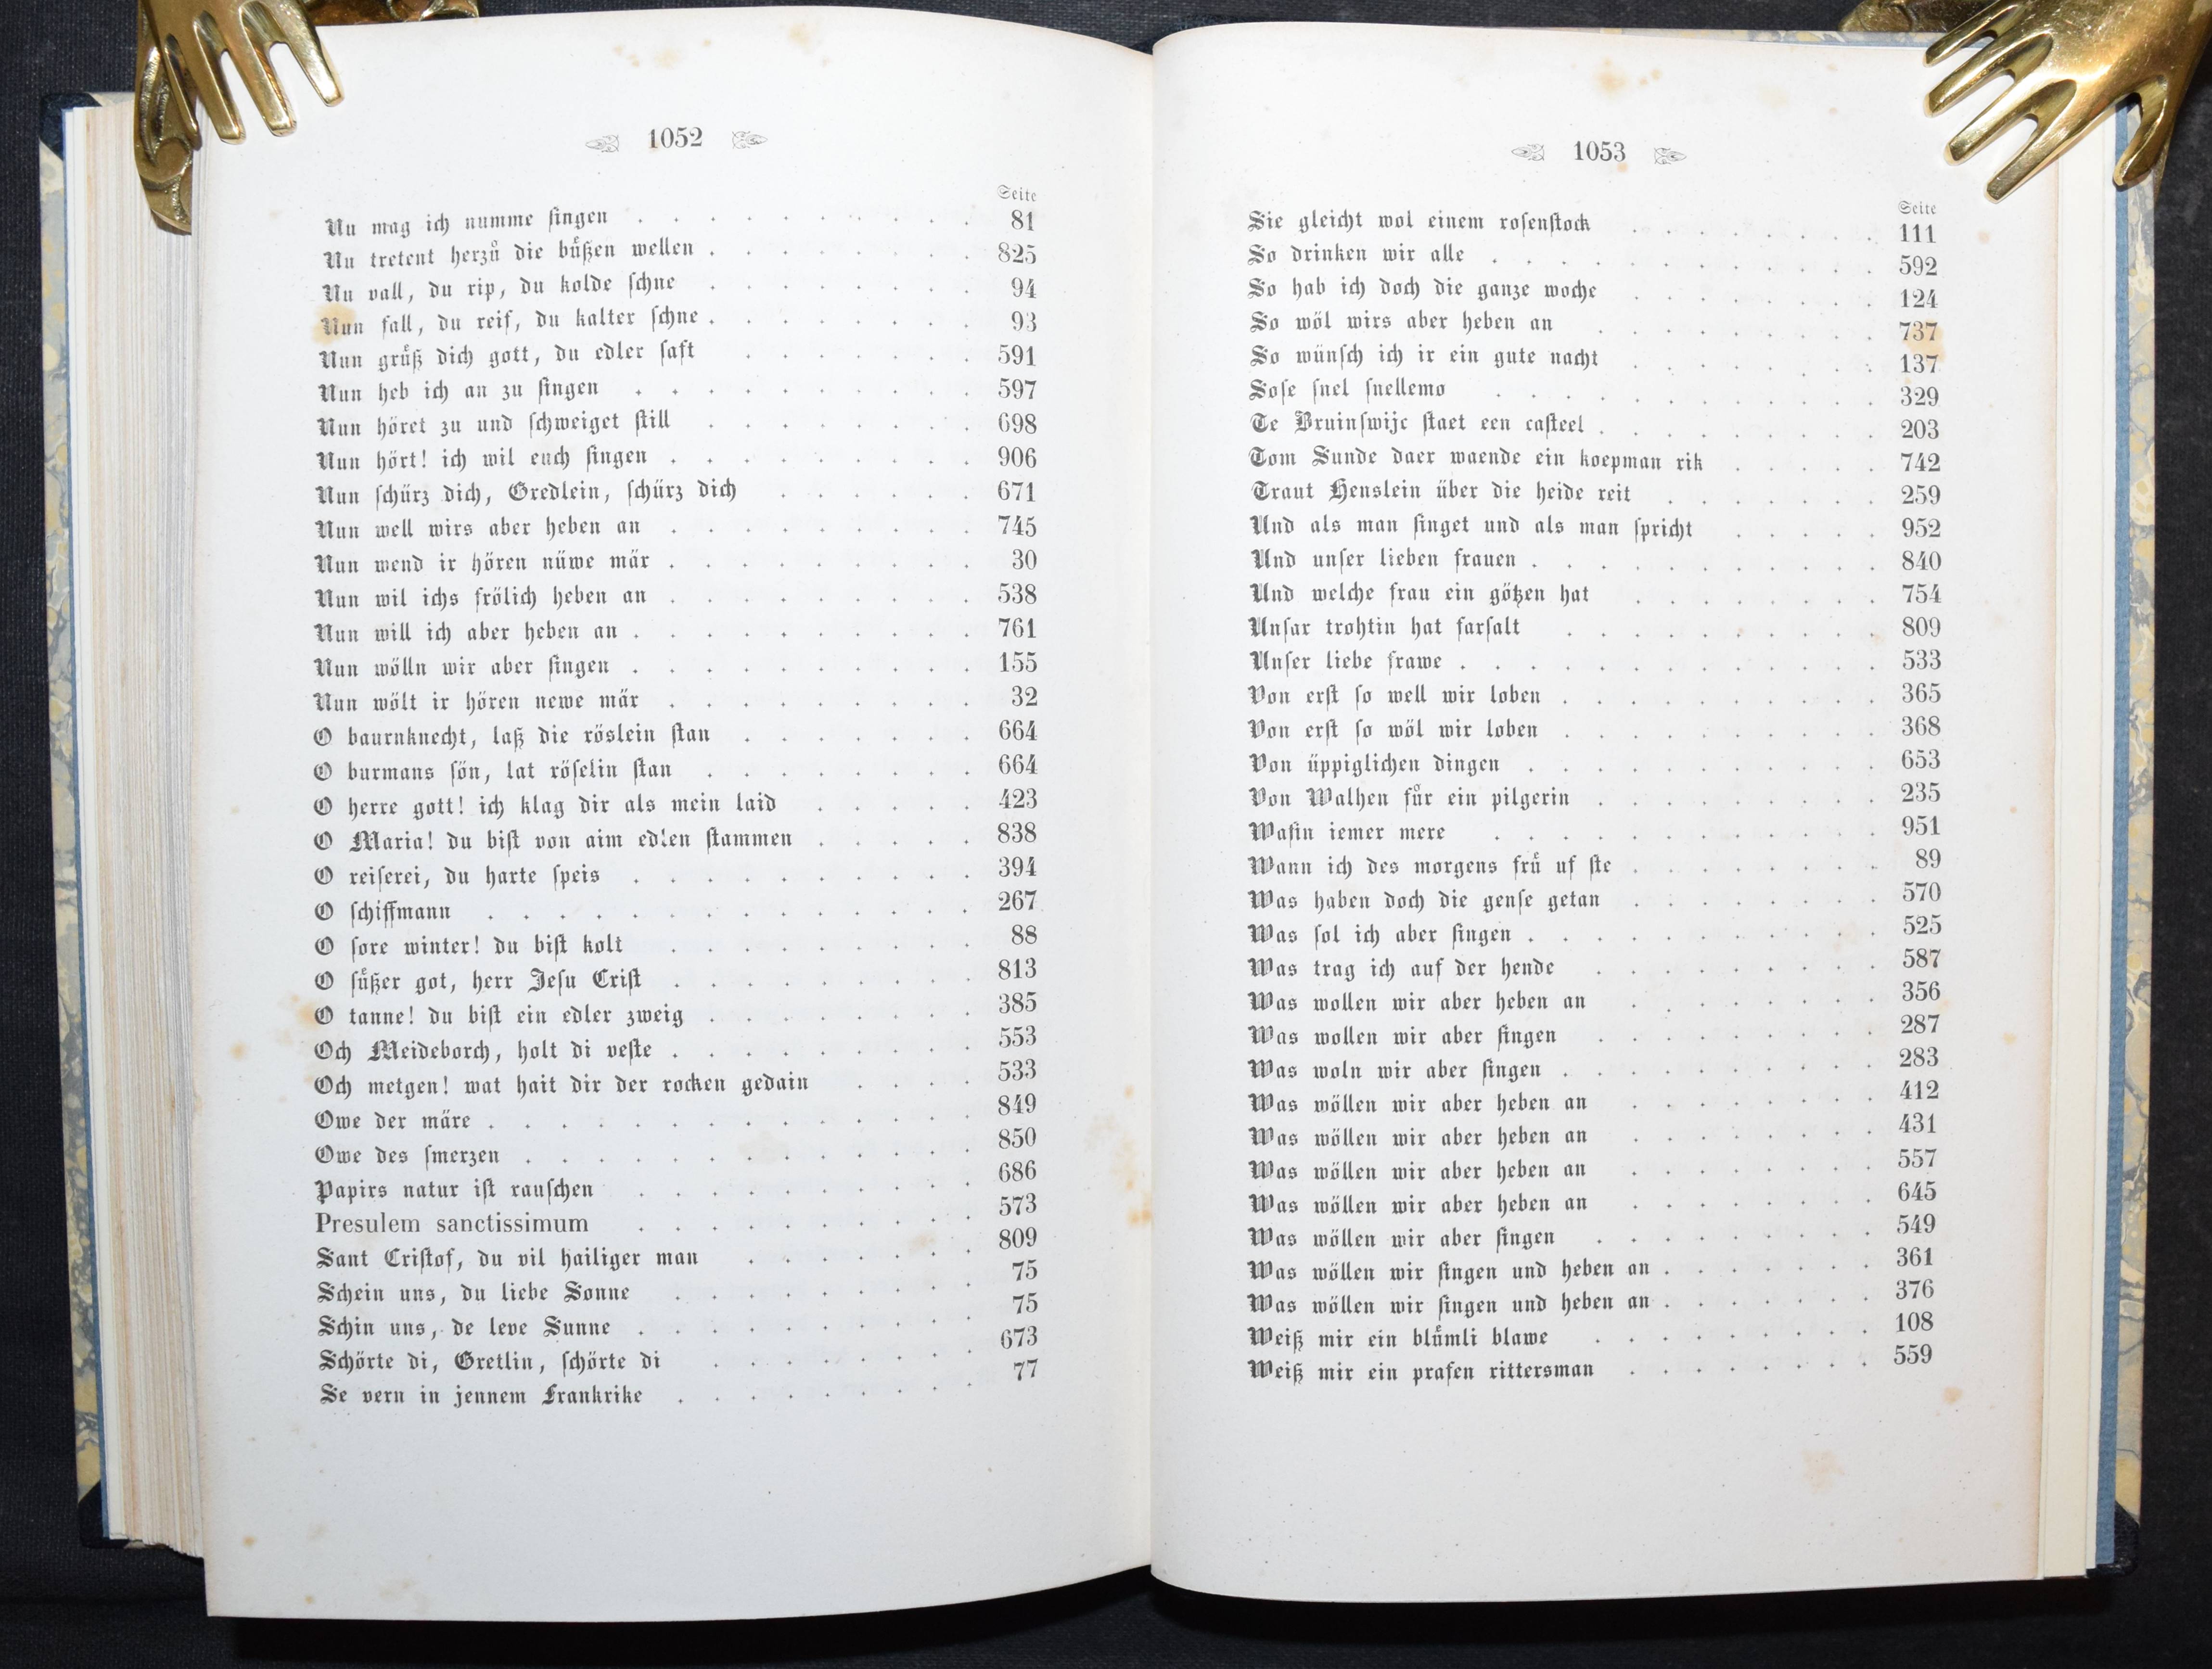 1052
Seite
Nu mag ich numme singen . . . . . . . . . . 81
Nu tretent herzů die bůßen wellen . . . . . . . . 825
Nu vall, du rip, du kolde schne . . . . . . . . 94
Nun fall, du reif, du kalter schne . . . . . . . . 93
Nun grůß dich gott, du edler saft . . . . . . . 591
Nun heb ich an zu singen . . . . . . . . . . 597
Nun höret zu und schweiget still . . . . . . . . 698
Nun hört! ich wil euch singen . . . . . . . . . 906
Nun schürz dich, Gredlein, schürz dich . . . . . . 671
Nun well wirs aber heben an . . . . . . . . . 745
Nun wend ir hören nüwe mär . . . . . . . . . 30
Nun wil ichs frölich heben an . . . . . . . . . 538
Nun will ich aber heben an . . . . . . . . . . 761
Nun wölln wir aber singen . . . . . . . . . . 155
Nun wölt ir hören newe mär . . . . . . . . . 32
O baurnknecht, laß die röslein stan . . . . . . . 664
O burmans sön, lat röselin stan . . . . . . . . 664
O herre gott! ich klag dir als mein laid . . . . . 423
O Maria! du bist von aim edlen stammen . . . . . 838
O reiserei, du harte speis . . . . . . . . . . 394
O schiffmann . . . . . . . . . . . . . . 267
O sore winter! du bist kolt . . . . . . . . . 88
O sůßer got, herr Jesu Crist . . . . . . . . . 813
O tanne! du bist ein edler zweig . . . . . . . . 385
Och Meideborch, holt di veste . . . . . . . . . 553
Och metgen! wat hait dir der rocken gedain . . . . 533
Owe der märe . . . . . . . . . . . . . . 849
Owe des smerzen . . . . . . . . . . . . . 850
Papirs natur ist rauschen . . . . . . . . . . 686
Presulem sanctissimum . . . . . . . . . . 573
Sant Cristof, du vil hailiger man . . . . . . . 809
Schein uns, du liebe Sonne . . . . . . . . . 75
Schin uns, de leve Sunne . . . . . . . . . . 75
Schörte di, Gretlin, schörte di . . . . . . . . 673
Se vern in jennem Frankrike . . . . . . . . . 77
1053
Seite
Sie gleicht wol einem rosenstock . . . . . . . . 111
So drinken wir alle . . . . . . . . . . . . 592
So hab ich doch die ganze woche . . . . . . . . 124
So wöl wirs aber heben an . . . . . . . . . 737
So wünsch ich ir ein gute nacht . . . . . . . . 137
Sose snel snellemo . . . . . . . . . . . . 329
Te Bruinswijc staet een casteel . . . . . . . . . 203
Tom Sunde daer waende ein koepman rik . . . . . 742
Traut Henslein über die heide reit . . . . . . . 259
Und als man singet und als man spricht . . . . . 952
Und unser lieben frauen . . . . . . . . . . . 840
Und welche frau ein götzen hat . . . . . . . . 754
Unsar trohtin hat farsalt . . . . . . . . . . 809
Unser liebe frawe . . . . . . . . . . . . . 533
Von erst so well wir loben . . . . . . . . . . 365
Von erst so wöl wir loben . . . . . . . . . . 368
Von üppiglichen dingen . . . . . . . . . . . 653
Von Walhen fůr ein pilgerin . . . . . . . . . 235
Wafin iemer mere . . . . . . . . . . . . 951
Wann ich des morgens frů uf ste . . . . . . . . 89
Was haben doch die gense getan . . . . . . . . 570
Was sol ich aber singen . . . . . . . . . . . 525
Was trag ich auf der hende . . . . . . . . . 587
Was wollen wir aber heben an . . . . . . . . 356
Was wollen wir aber singen . . . . . . . . . 287
Was woln wir aber singen . . . . . . . . . . 283
Was wöllen wir aber heben an . . . . . . . . 412
Was wöllen wir aber heben an . . . . . . . . 431
Was wöllen wir aber heben an . . . . . . . . 557
Was wöllen wir aber heben an . . . . . . . . 645
Was wöllen wir aber singen . . . . . . . . . 549
Was wöllen wir singen und heben an . . . . . . . 361
Was wöllen wir singen und heben an . . . . . . . 376
Weiß mir ein blůmli blawe . . . . . . . . . 108
Weiß mir ein prafen rittersman . . . . . . . . 559